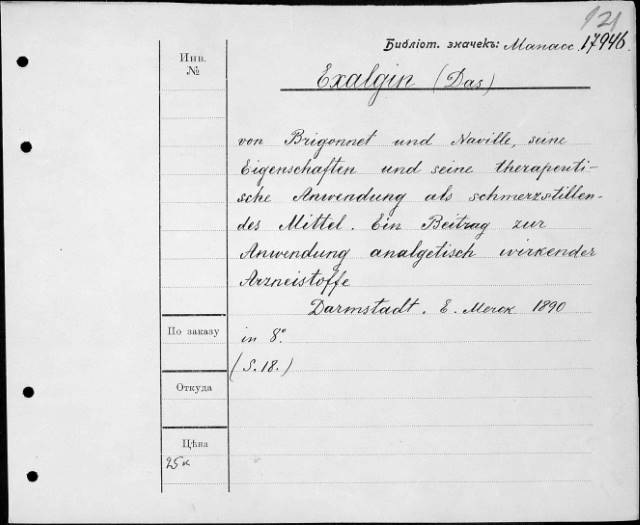 121
Библіот. значекъ: Манасс. 17946.
Инв.
№
Exalgin (Das)
von Brigonnet und Naville, seine
Eigenschaften und seine therapeuti-
sche Anwendung als schmerzstillen-
des Mittel. Ein Beitrag zur
Anwendung analgetisch wirkender
Arzneistoffe
Darmstadt. E. Merck 1890
По заказу
in 8°
(S. 18.)
Откуда
Цѣна
25к